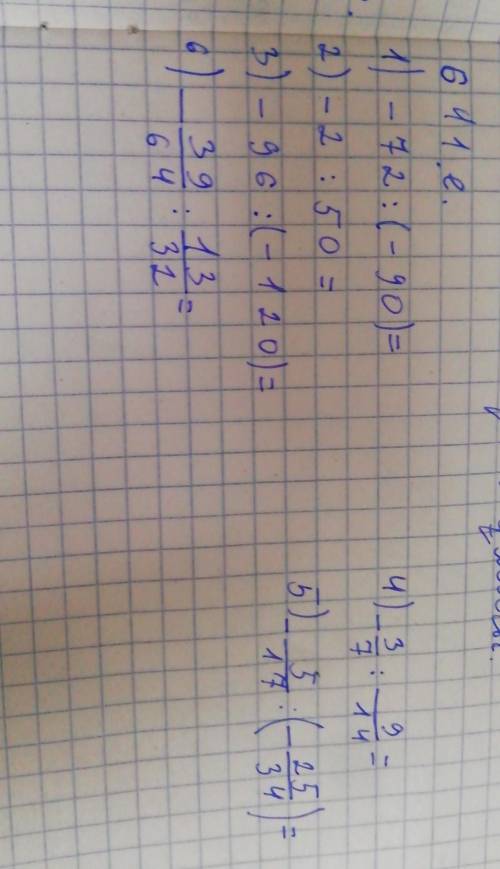 641.е.
1) -72:(-90)=
2) -2:50=
3) -96:(-120)=
6) -39/64 : 13/32 =
4) -3/7 : 9/14 =
5) -5/17 : (-25/34) =